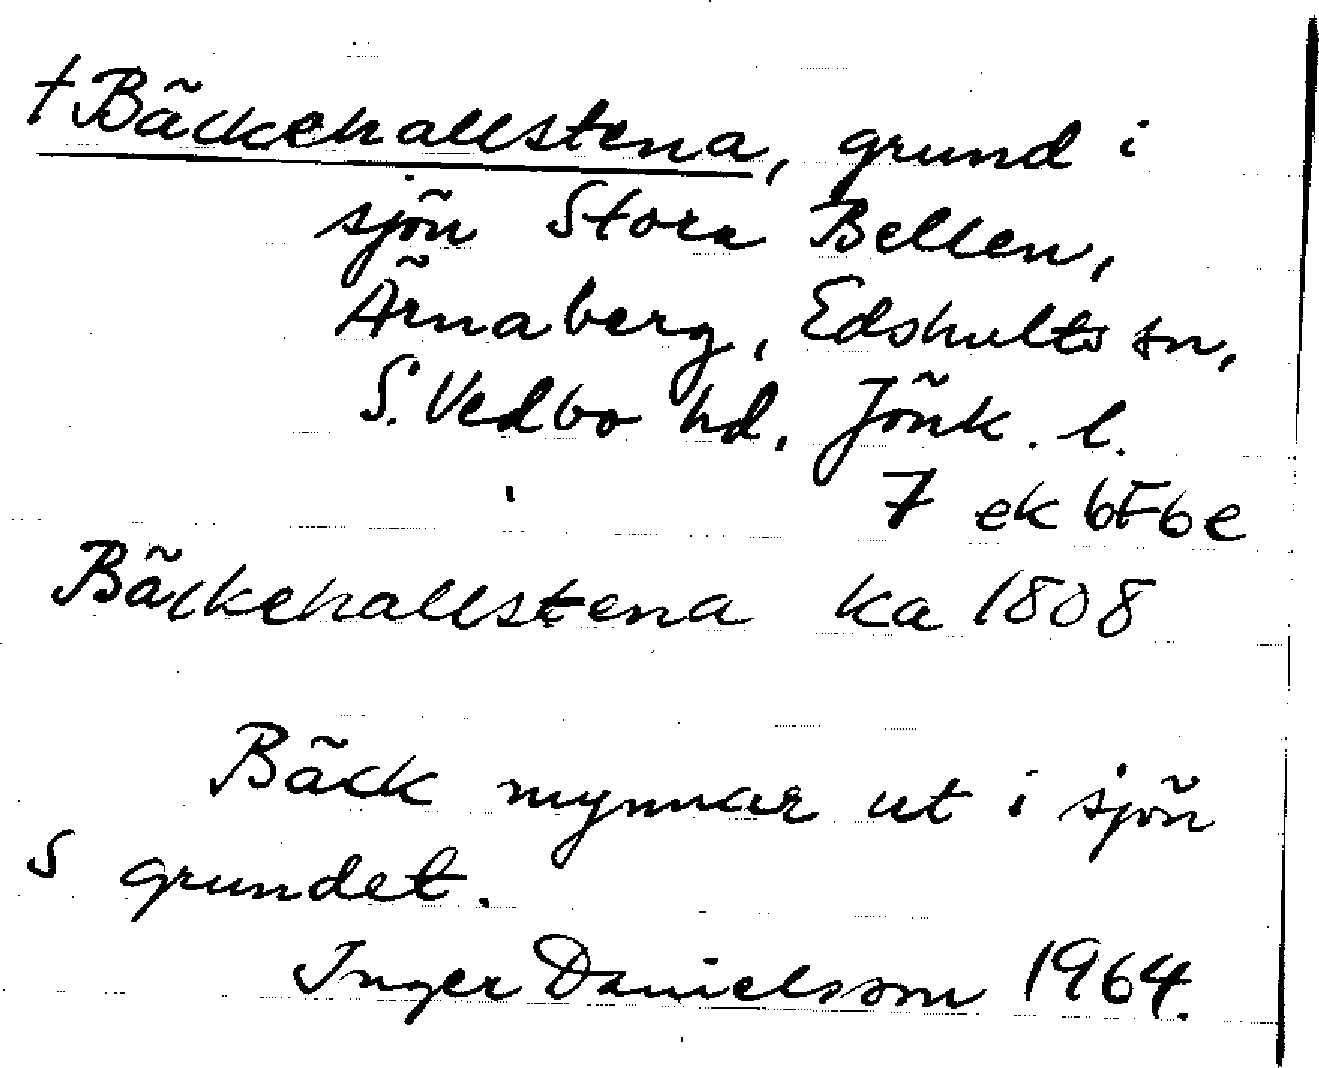 †Bäckehallstena, grund i
sjön Stora Bellen,
Ärnaberg, Edshults sn,
S. Vedbo hd. Jönk. l.
7 ek bFbe
Bäckehallstena ka 1808
Bäck mynnar ut i sjön
S grundet.
Inger Danielsson 1964.